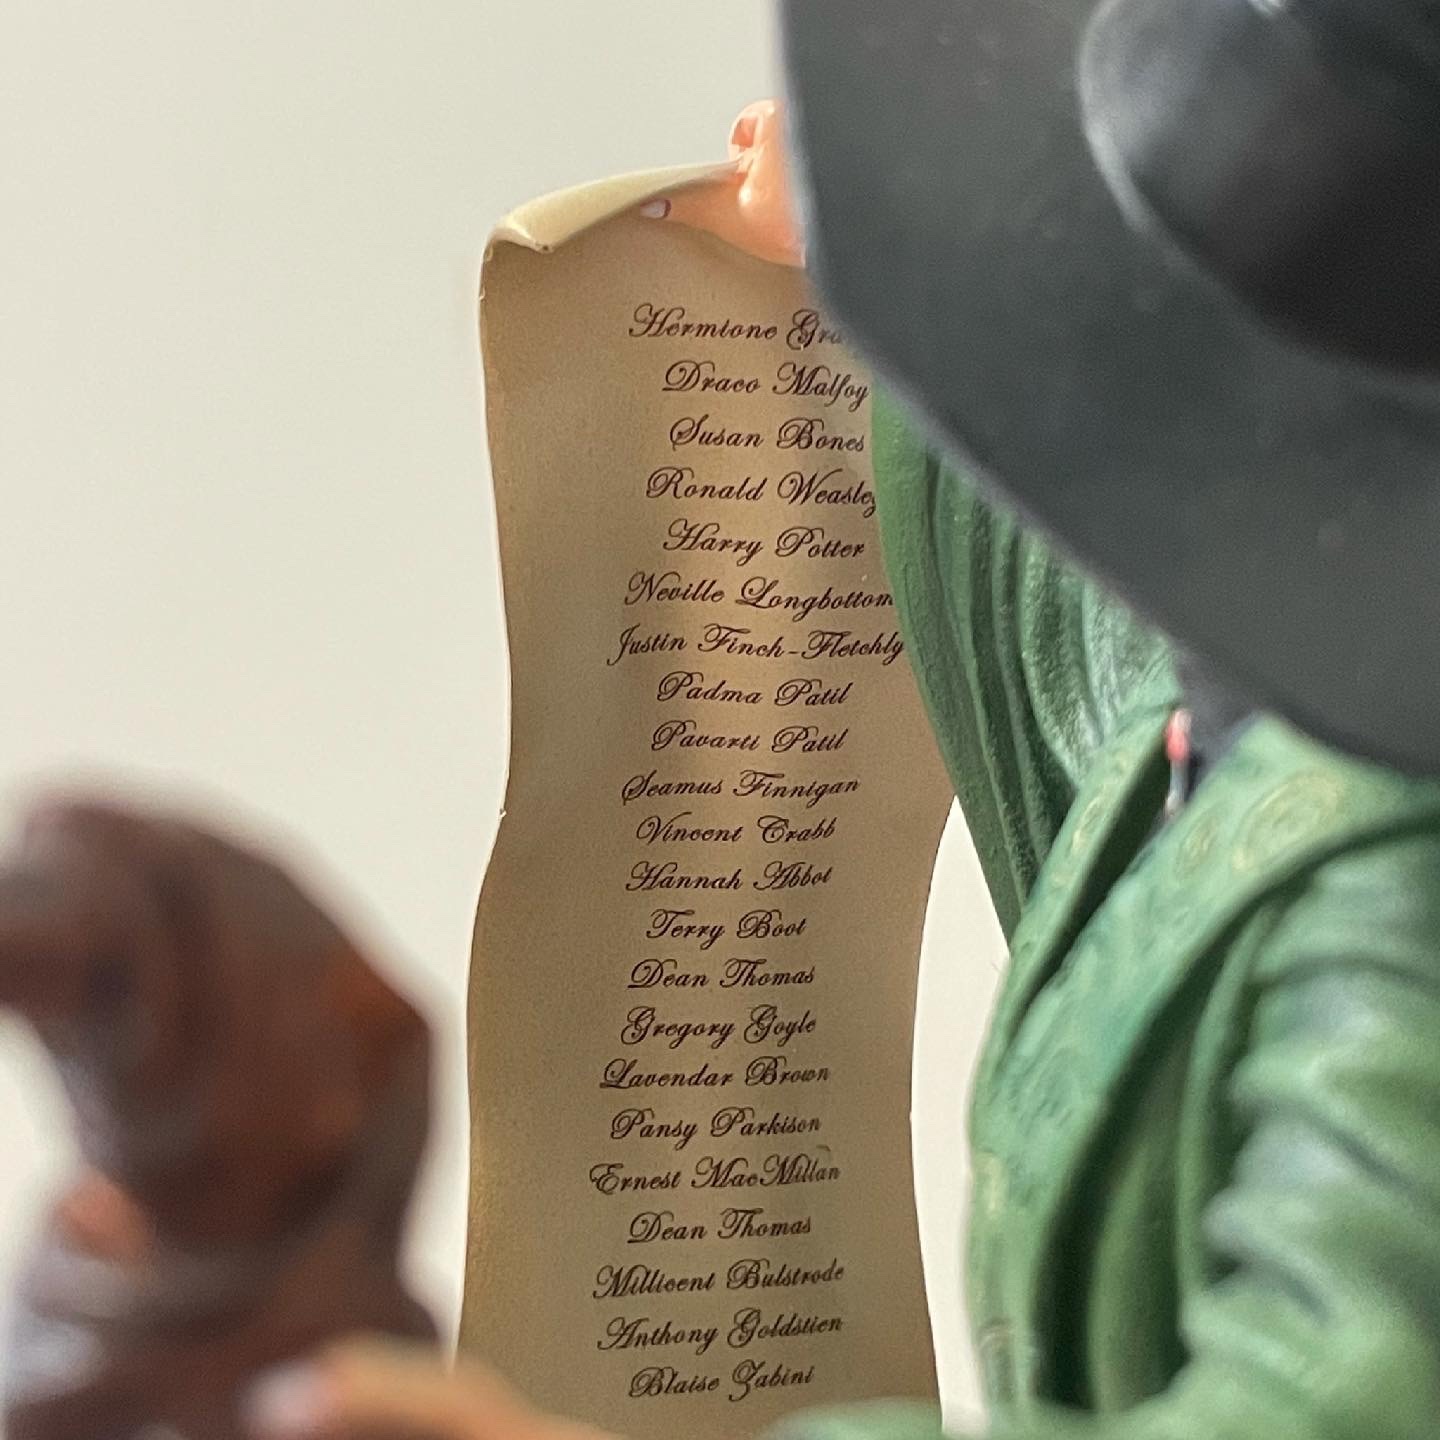 Hermione Gra
Draco Malfoy
Susan Bones
Ronald Weasley
Harry Potter
Neville Longbottom
Justin Finch-Fletchly
Padma Patil
Pavarti Patil
Seamus Finnigan
Vincent Crabb
Hannah Abbot
Terry Boot
Dean Thomas
Gregory Goyle
Lavendar Brown
Pansy Parkison
Ernest MacMillan
Dean Thomas
Millicent Bulstrode
Anthony Goldstien
Blaise Zabini